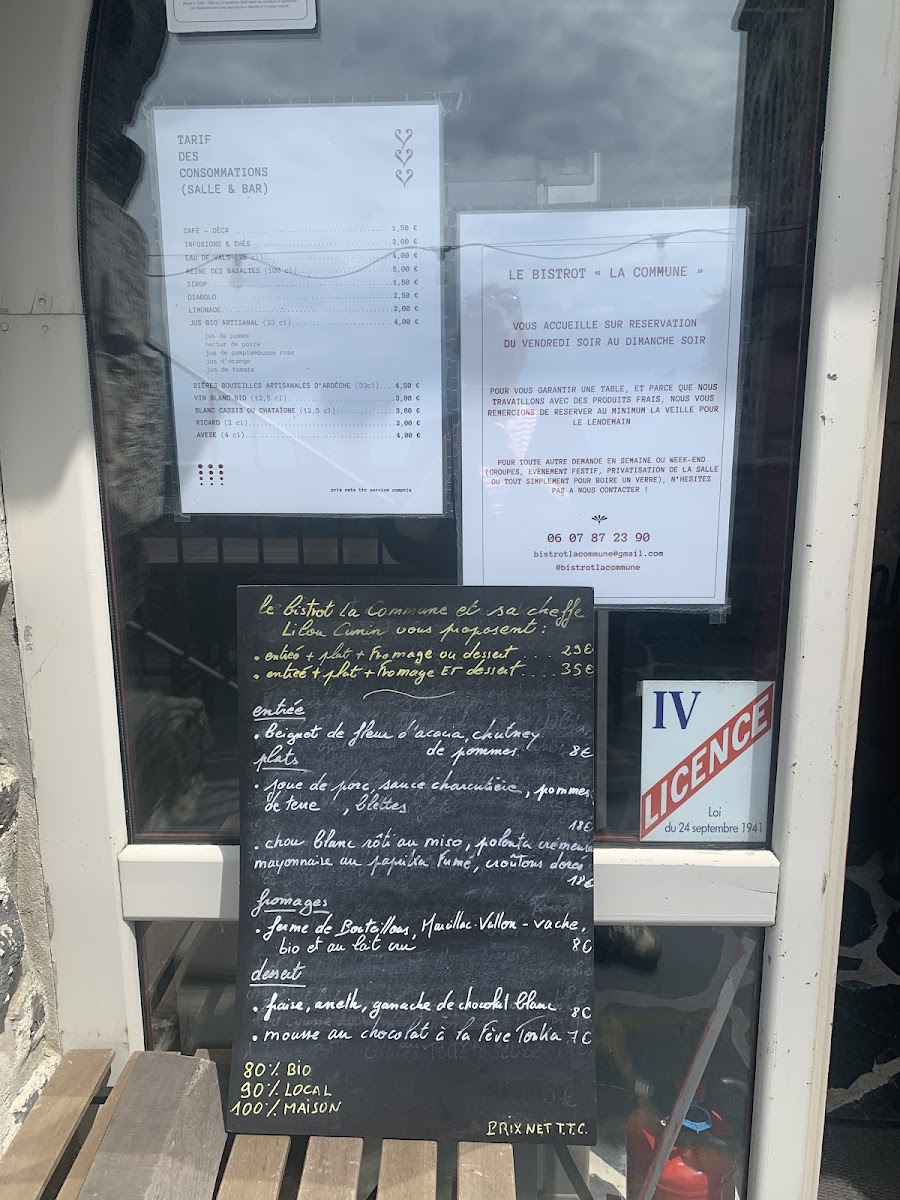 TARIF
DES
CONSOMMATIONS
(SALLE & BAR)
CAFÉ - DÉCA 1,50 €
INFUSIONS & THÉS 3,00 €
EAU DE VALS (25 cl) 4,00 €
REINE DES BASALTES (100 cl) 5,00 €
SIROP 1,50 €
DIABOLO 2,50 €
LIMONADE 2,00 €
JUS BIO ARTISANAL (33 cl) 4,00 €
jus de pomme
nectar de poire
jus de pamplemousse rose
jus d'orange
jus de tomate
BIÈRES BOUTEILLES ARTISANALES D'ARDÈCHE (33cl) 4,50 €
VIN BLANC BIO (12,5 cl) 3,00 €
BLANC CASSIS OU CHATAÎGNE (12,5 cl) 3,80 €
RICARD (2 cl) 2,00 €
AVEZE (4 cl) 4,00 €
prix nets ttc service compris
LE BISTROT « LA COMMUNE »
VOUS ACCUEILLE SUR RESERVATION
DU VENDREDI SOIR AU DIMANCHE SOIR
POUR VOUS GARANTIR UNE TABLE, ET PARCE QUE NOUS
TRAVAILLONS AVEC DES PRODUITS FRAIS, NOUS VOUS
REMERCIONS DE RESERVER AU MINIMUM LA VEILLE POUR
LE LENDEMAIN
POUR TOUTE AUTRE DEMANDE EN SEMAINE OU WEEK-END
(GROUPES, EVENEMENT FESTIF, PRIVATISATION DE LA SALLE
OU TOUT SIMPLEMENT POUR BOIRE UN VERRE), N'HESITEZ
PAS A NOUS CONTACTER !
06 07 87 23 90
bistrotlacommune@gmail.com
@bistrotlacommune
le bistrot La Commune et sa cheffe
Lilou Cunin vous proposent :
• entrée + plat + Fromage ou dessert .... 29€
• entrée + plat + Fromage ET dessert .... 35€
entrée
• beignet de fleur d'acacia, chutney
de pommes. 8€
plats
• joue de porc, sauce charcutière, pommes
de terre , blettes
18€
• chou blanc rôti au miso, polenta crémeuse
mayonnaise au paprika fumé, croûtons dorés
18€
fromages
• ferme de Bouteillous, Marillac-Vallon - vache,
bio et au lait cru 8€
dessert
• fraise, aneth, ganache de chocolat blanc 8€
• mousse au chocolat à la Fève Tonka 7€
80% BIO
90% LOCAL
100% MAISON
PRIX NET T.T.C.
IV
LICENCE
Loi
du 24 septembre 1941